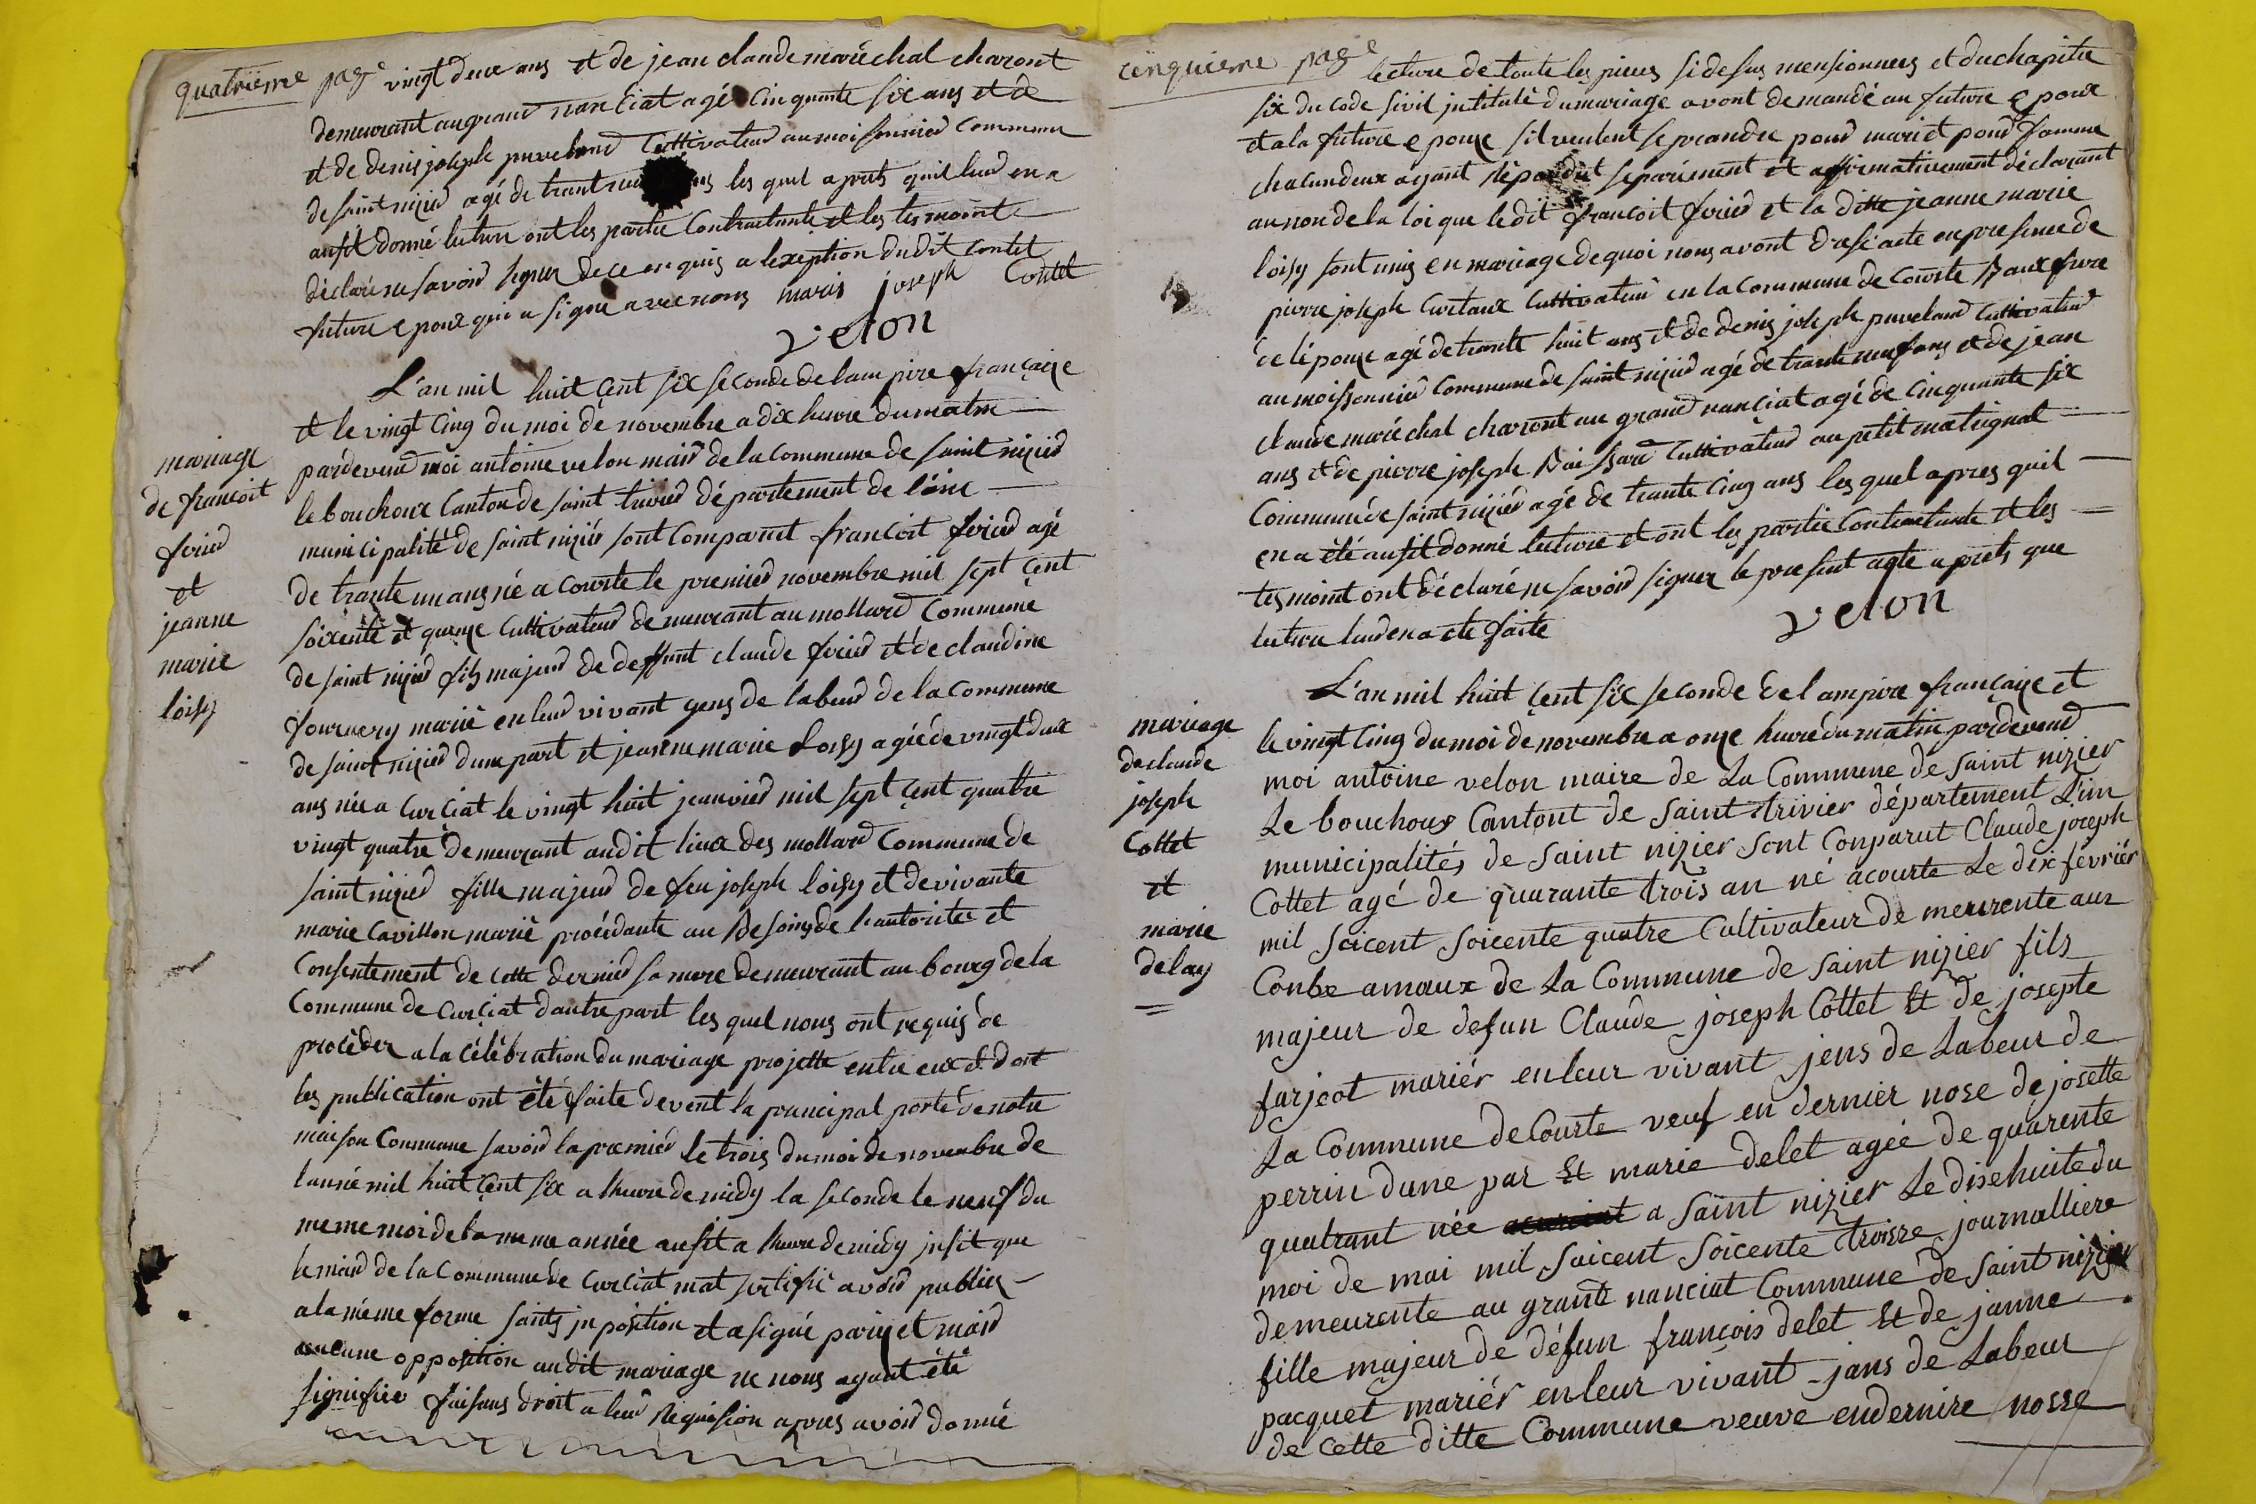 quatrieme page
vingt deux ans et de jean claude maréchal charont
demeurant au grand nanciat agé cinquante six ans et de
et de denis joseph puveland Cultivateur au moissonnier Commune
de saint nizier agé de trante neuf ans les quel aprets quil leur en a
ausit donné lecture ont les partie Contractante et les tesmoint
déclaré ne savoir signer de ce enquis a lexeption dudit contet
future epoux qui a signé avec nous maris joseph Cottet
velon
L'an mil huit cent six seconde de lampire française
et le vingt cinq du moi de novembre a dix heure du matin
mariage
de francoit
ferier
et
jeanne
marie
loisy
pardevend moi antoine velon maire de la Commune de saint nizier
le bouchoux Canton de saint trivier département de l'ain
municipalité de saint nizier sont Comparut francoit ferier agé
de trante un ans né a Courte le premier novembre mil sept cent
soixente et quinze Cultivateur demeurant au mollard Commune
de saint nizier fils majeur de deffunt claude ferier et de claudine
fournery marié en leur vivant gens de labeur de la Commune
de saint nizier dune part et jeanne marie Loisy agée de vingt deux
ans née a Curciat le vingt huit jeanvier mil sept cent quatre
vingt quatre demeurant audit lieux des mollard Commune de
saint nizier fille majeur de feu joseph loisy et de vivante
marie Cavillon marié procédante au Besoing de l'autorites et
Consentement de cette dernier sa mere demeurant au bourg de la
Commune de Curciat dautre part les quel nous ont requis de
procéder a la célébration du mariage projette entre eux et dont
les publication ont été faite devent la principal porte de notre
maison Commune savoir la premier le trois du moi de novembre de
lannée mil huit cent six a lheure de midy la seconde le neuf du
meme moi de la meme année ausit a lheure de midy insit que
le maire de la Commune de Curciat mat sertifié avoir publier
a la méme forme sants inposition et a signé pariset maire
aucune opposition audit mariage ne nous ayant été
signifiée faisans droit a leur réquision apres avoir donné
cinquieme page
lecture de toute les pieces si desus mensionnees et du chapitre
six du code sivil intitulé du mariage avont demandé au future epoux
et a la future epouze sil veulent se prandre pour mari et pour famme
chacun deux ayant répondut séparément et affirmativement déclarant
au non de la loi que le dit francoit ferier et la ditte jeanne marie
loisy sont unis en mariage de quoi nous avont dresé acte en presence de
pierre joseph Curtaux Cultivateur en la Commune de Courte Baux frere
de lépoux agé de trante huit ans et de denis joseph puveland Cultivateur
au moissonnier Commune de saint nizier agé de trante neuf ans et de jean
claude maréchal charont au grand nanciat agé de cinquante six
ans et de pierre joseph Baissard Cultivateur au petit matignat
Commune de saint nizier agé de trante cinq ans les quel apres quil
en a été ausit donné lecture et ont les partie Contractante et les
tesmoint ont déclaré ne savoir signer le presint acte aprets que
lecture leur en a été faite
velon
L'an mil huit cent six seconde de lampire française et
le vingt cinq du moi de novembre a onze heure du matin pardevend
mariage
de claude
joseph
Cottet
et
marie
delay
moi antoine velon maire de La Commune de saint nizier
Le bouchoux Cantont de saint trivier département L'ain
municipalités de saint nizier sont Conparut Claude joseph
Cottet agé de quarante trois an né acourte Le dix février
mil saicent soicente quatre Cultivateur de meurente aux
Conbe amaux de La Commune de saint nizier fils
majeur de defun Claude joseph Cottet Et de josepte
farjeot mariér enleur vivant jens de Labeur de
La Commune de Courte veuf en dernier nose de josette
perrin dune par Et marie delet agée de quarente
quatrant née a saint nizier Le dixehuite du
moi de mai mil saicent soicente troisze journalliere
demeurente au grante nanciat Commune de saint nizier
fille majeur de défun françois delet Et de janne
pacquet mariér enleur vivant jans de Labeur
de cette ditte Commune veuve endernire nosse